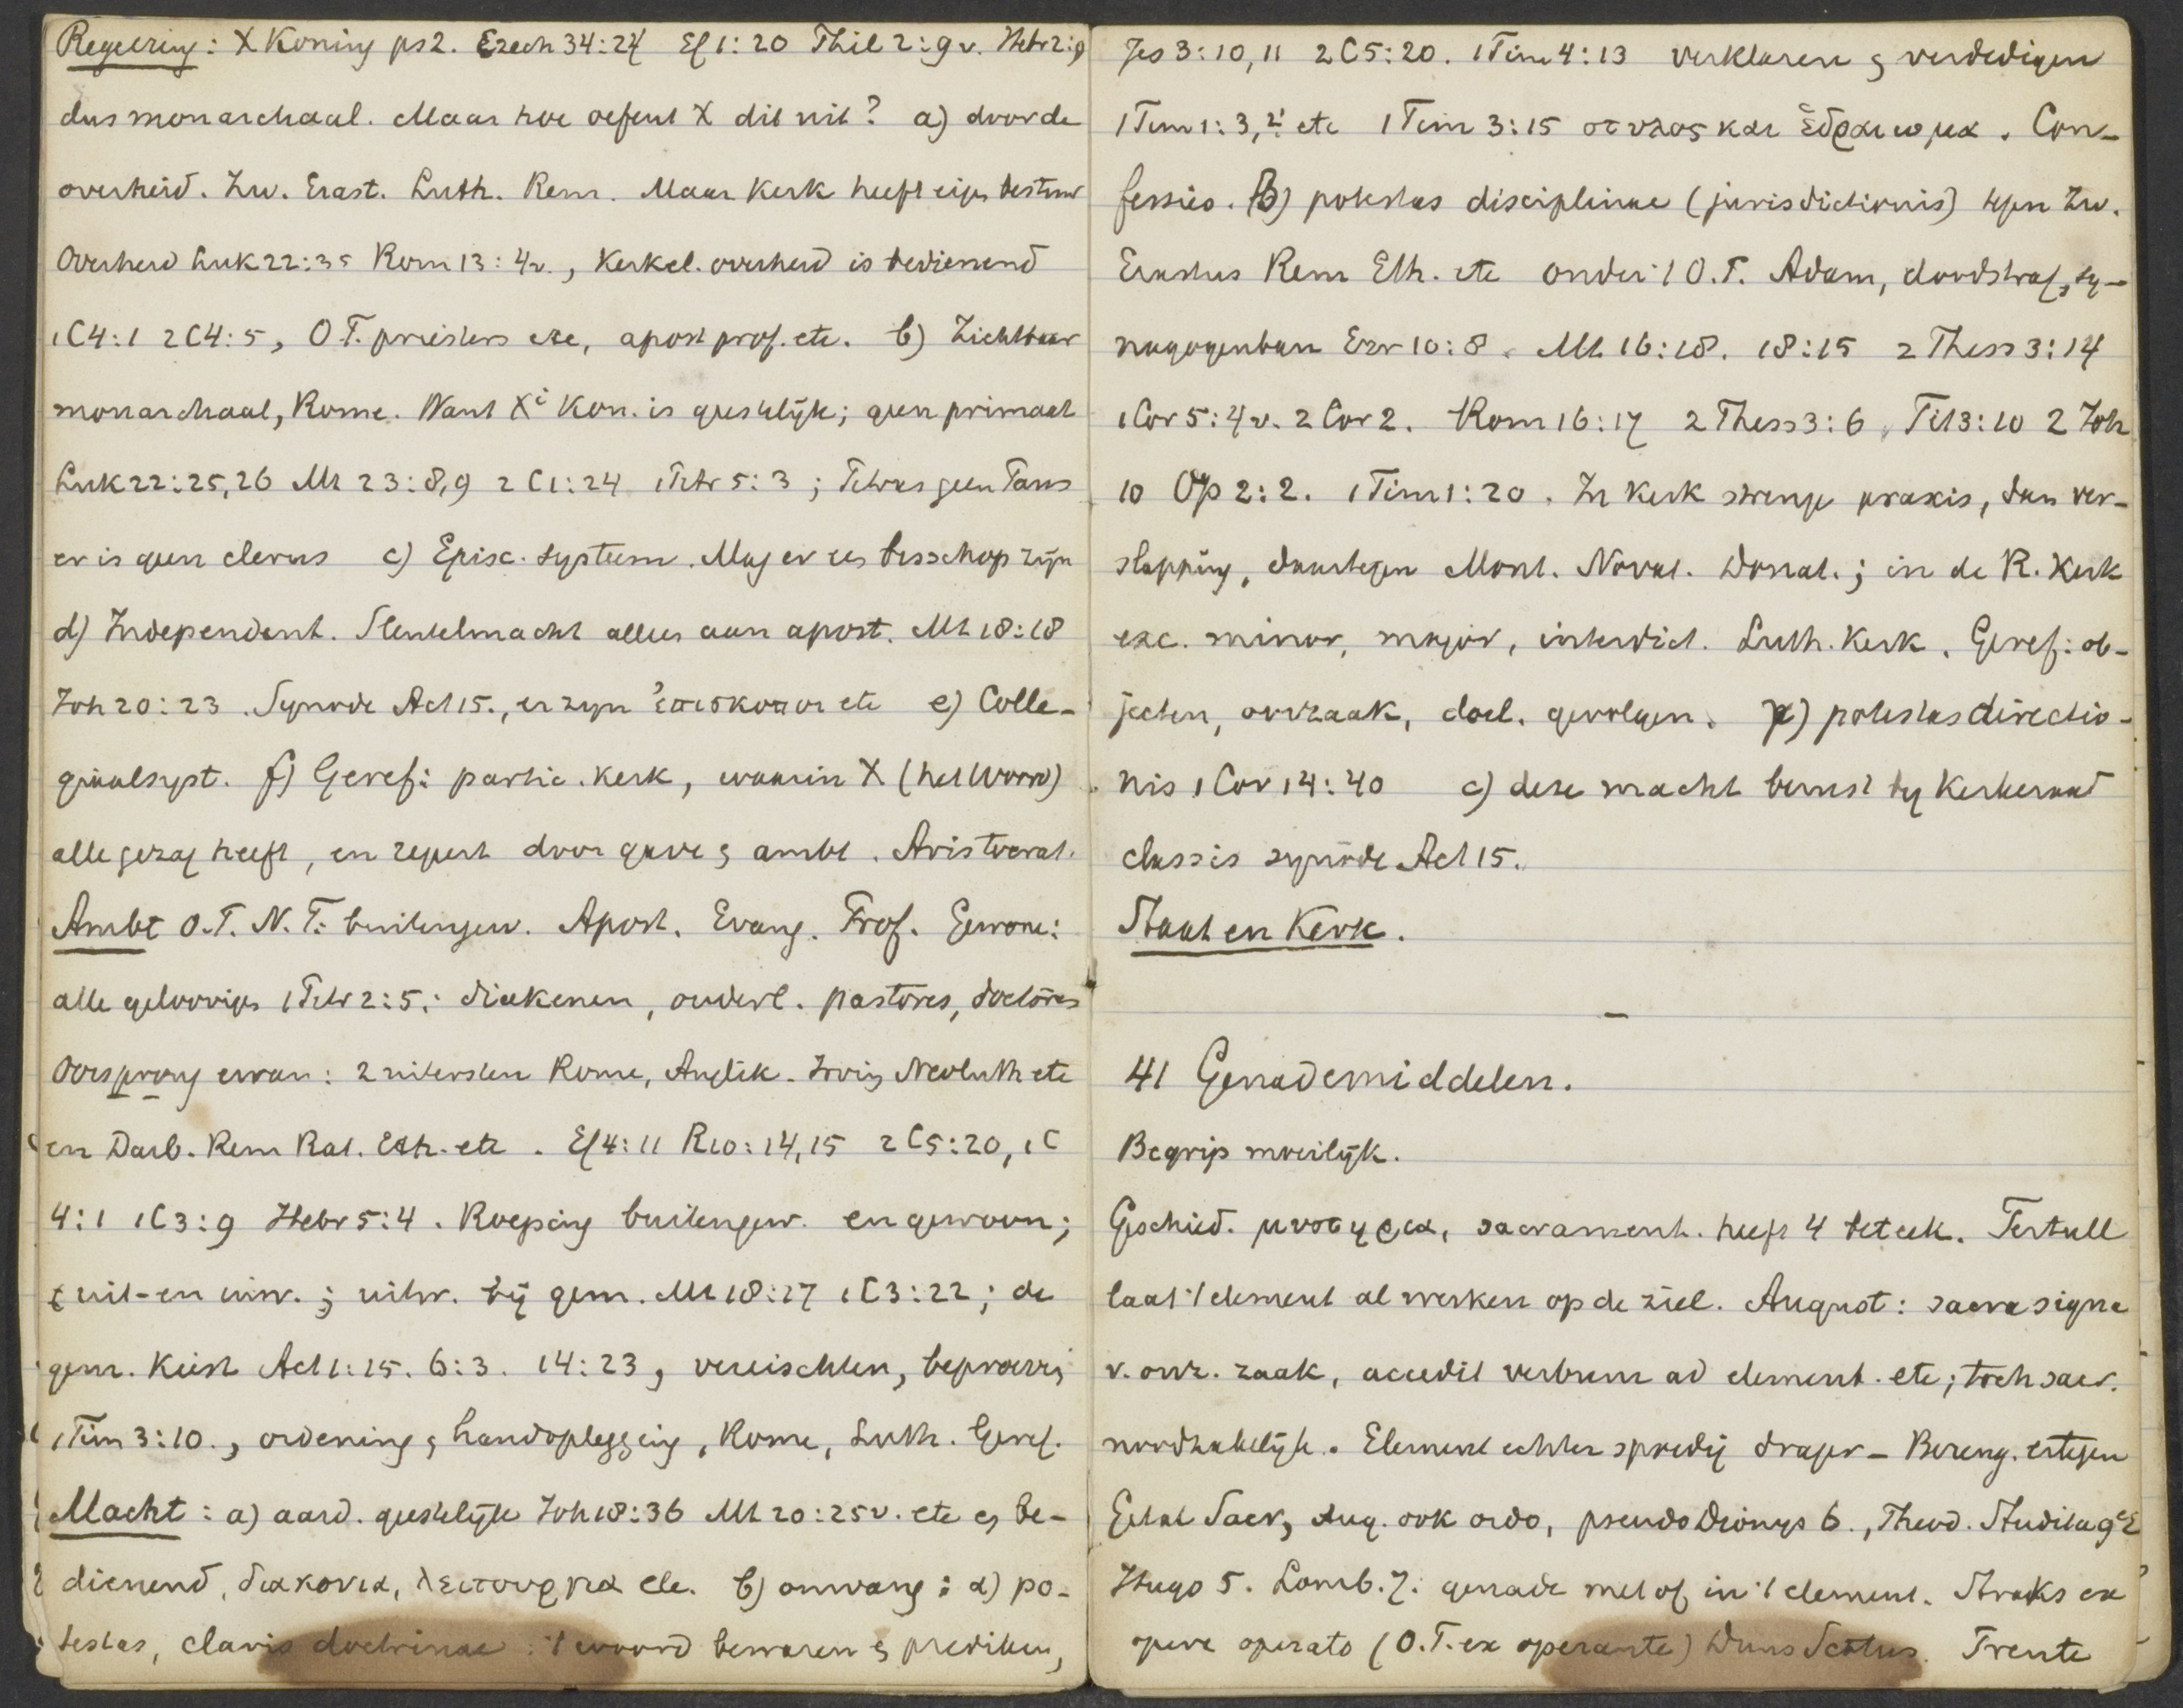 Regeering: X Koning ps 2. Ezech 34:24 Ef 1:20 Phil 2:9v. Hebr 2:9
dus monarchaal. Maar hoe oefent X dit uit? a) door de
overheid. Zw. Erast. Luth. Rem. Maar kerk heeft eigen bestuur
Overheid Luk 22:35 Rom 13:4v., kerkel. overheid is bedienend
1C4:1 2C4:5, O.T. priesters etc, apost prof. etc. b) Zichtbaar
monarchaal, Rome. Want Xi Kon. is geestelijk; geen primaat
Luk 22:25,26 Mt 23:8,9 2C1:24 1Petr 5:3; Petrus geen Paus
er is geen clerus c) Episc. systeem. Mag er een bisschop zijn
d) Independent. Sleutelmacht alleen aan apost. Mt 18:18
Joh 20:23. Synode Act 15., er zijn ἐπισκοποι etc e) Colle-
giaalsyst. f) Geref: partic. kerk, waarin X (het Woord)
alle gezag heeft, en regeert door gave & ambt. Aristocrat.
Ambt O.T. N.T: buitengew. Apost. Evang. Prof. Gewone:
alle geloovigen 1Petr 2:5: diakenen, ouderl. pastores, doctores
Oorsprong ervan: 2 uitersten Rome, Anglik. Irving Neoluth etc
en Darb. Rem Rat. Eth. etc. Ef 4:11 R10:14,15 2C5:20, 1C
4:1 1C3:9 Hebr 5:4. Roeping buitengew. en gewoon;
uit- en inw.; uitw. bij gem. Mt 18:17 1C3:22; de
gem. kiest Act 1:15. 6:3. 14:23, vereischten, beproeving
1Tim 3:10., ordening & handoplegging, Rome, Luth. Geref.
Macht: a) aard. geestelijk Joh 18:36 Mt 20:25v. etc en be-
dienend, διακονια, λειτουργια etc. b) omvang: α) po-
testas, clavis doctrinae: 't woord bewaren & prediken,
Jes 3:10,11 2C5:20. 1Tim 4:13 verklaren & verdedigen
1Tim 1:3,4 etc 1Tim 3:15 στυλος και ἑδραιωμα. Con-
fessies. β) potestas disciplinae (jurisdictionis) tegen Zw.
Erastus Rem Eth. etc onder 't O.T. Adam, doodstraf, sy-
nagogenban Ezr 10:8. Mt 16:18. 18:15 2 Thess 3:14
1Cor 5:4v. 2 Cor 2. Rom 16:17 2 Thess 3:6, Tit 3:10 2 Joh
10 Op 2:2. 1Tim 1:20. In kerk strenge praxis, dan ver-
slapping, daartegen Mont. Novat. Donat.; in de R. Kerk
exc. minor, major, interdict. Luth. kerk. Geref: ob-
jecten, oorzaak, doel, gevolgen. γ) potestas directio-
nis 1Cor 14:40 c) deze macht berust bij kerkeraad
classis synode Act 15.
Staat en Kerk.
41 Genademiddelen.
Begrip moeilijk.
Geschied. μυστηρια, sacrament. heeft 4 beteek. Tertull
laat 't element al werken op de ziel. August: sacra signa
v. onz. zaak, accedit verbum ad element. etc; toch sacr.
noodzakelijk. Element echter spoedig drager – Bereng. ertegen
Getal Sacr, Aug. ook ordo, pseudo Dionys 6., Theod. Studita 9e E
Hugo 5. Lomb. 7: genade met of in 't element. Straks ex
opere operato (O.T. ex operante) Duns Scotus. Trente